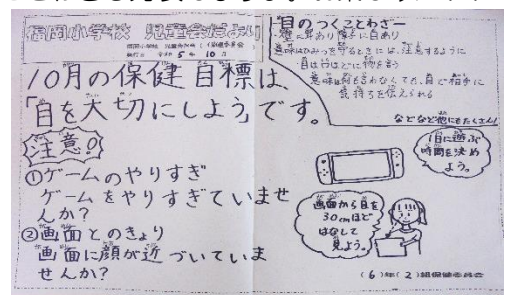 福岡小学校 児童会便より
福岡小学校 児童会
10月
10月の保健目標は、
「目を大切にしよう」です。
注意!
①ゲームのやりすぎ
ゲームをやりすぎていませ
んか?
②画面とのきょり
画面に顔が近づいていま
せんか?
目のつくことわざ
壁に耳あり障子に目あり
意味はひみつを守るときには、注意するように
目は口ほどに物を言う
意味は何も言わなくても、目で相手に
気持ちを伝えられる
などなど他にもたくさん!
1日に遊ぶ
時間を決め
よう。
画面から目を
30cmほど
はなして
見よう。
(6)年(2)組保健委員会